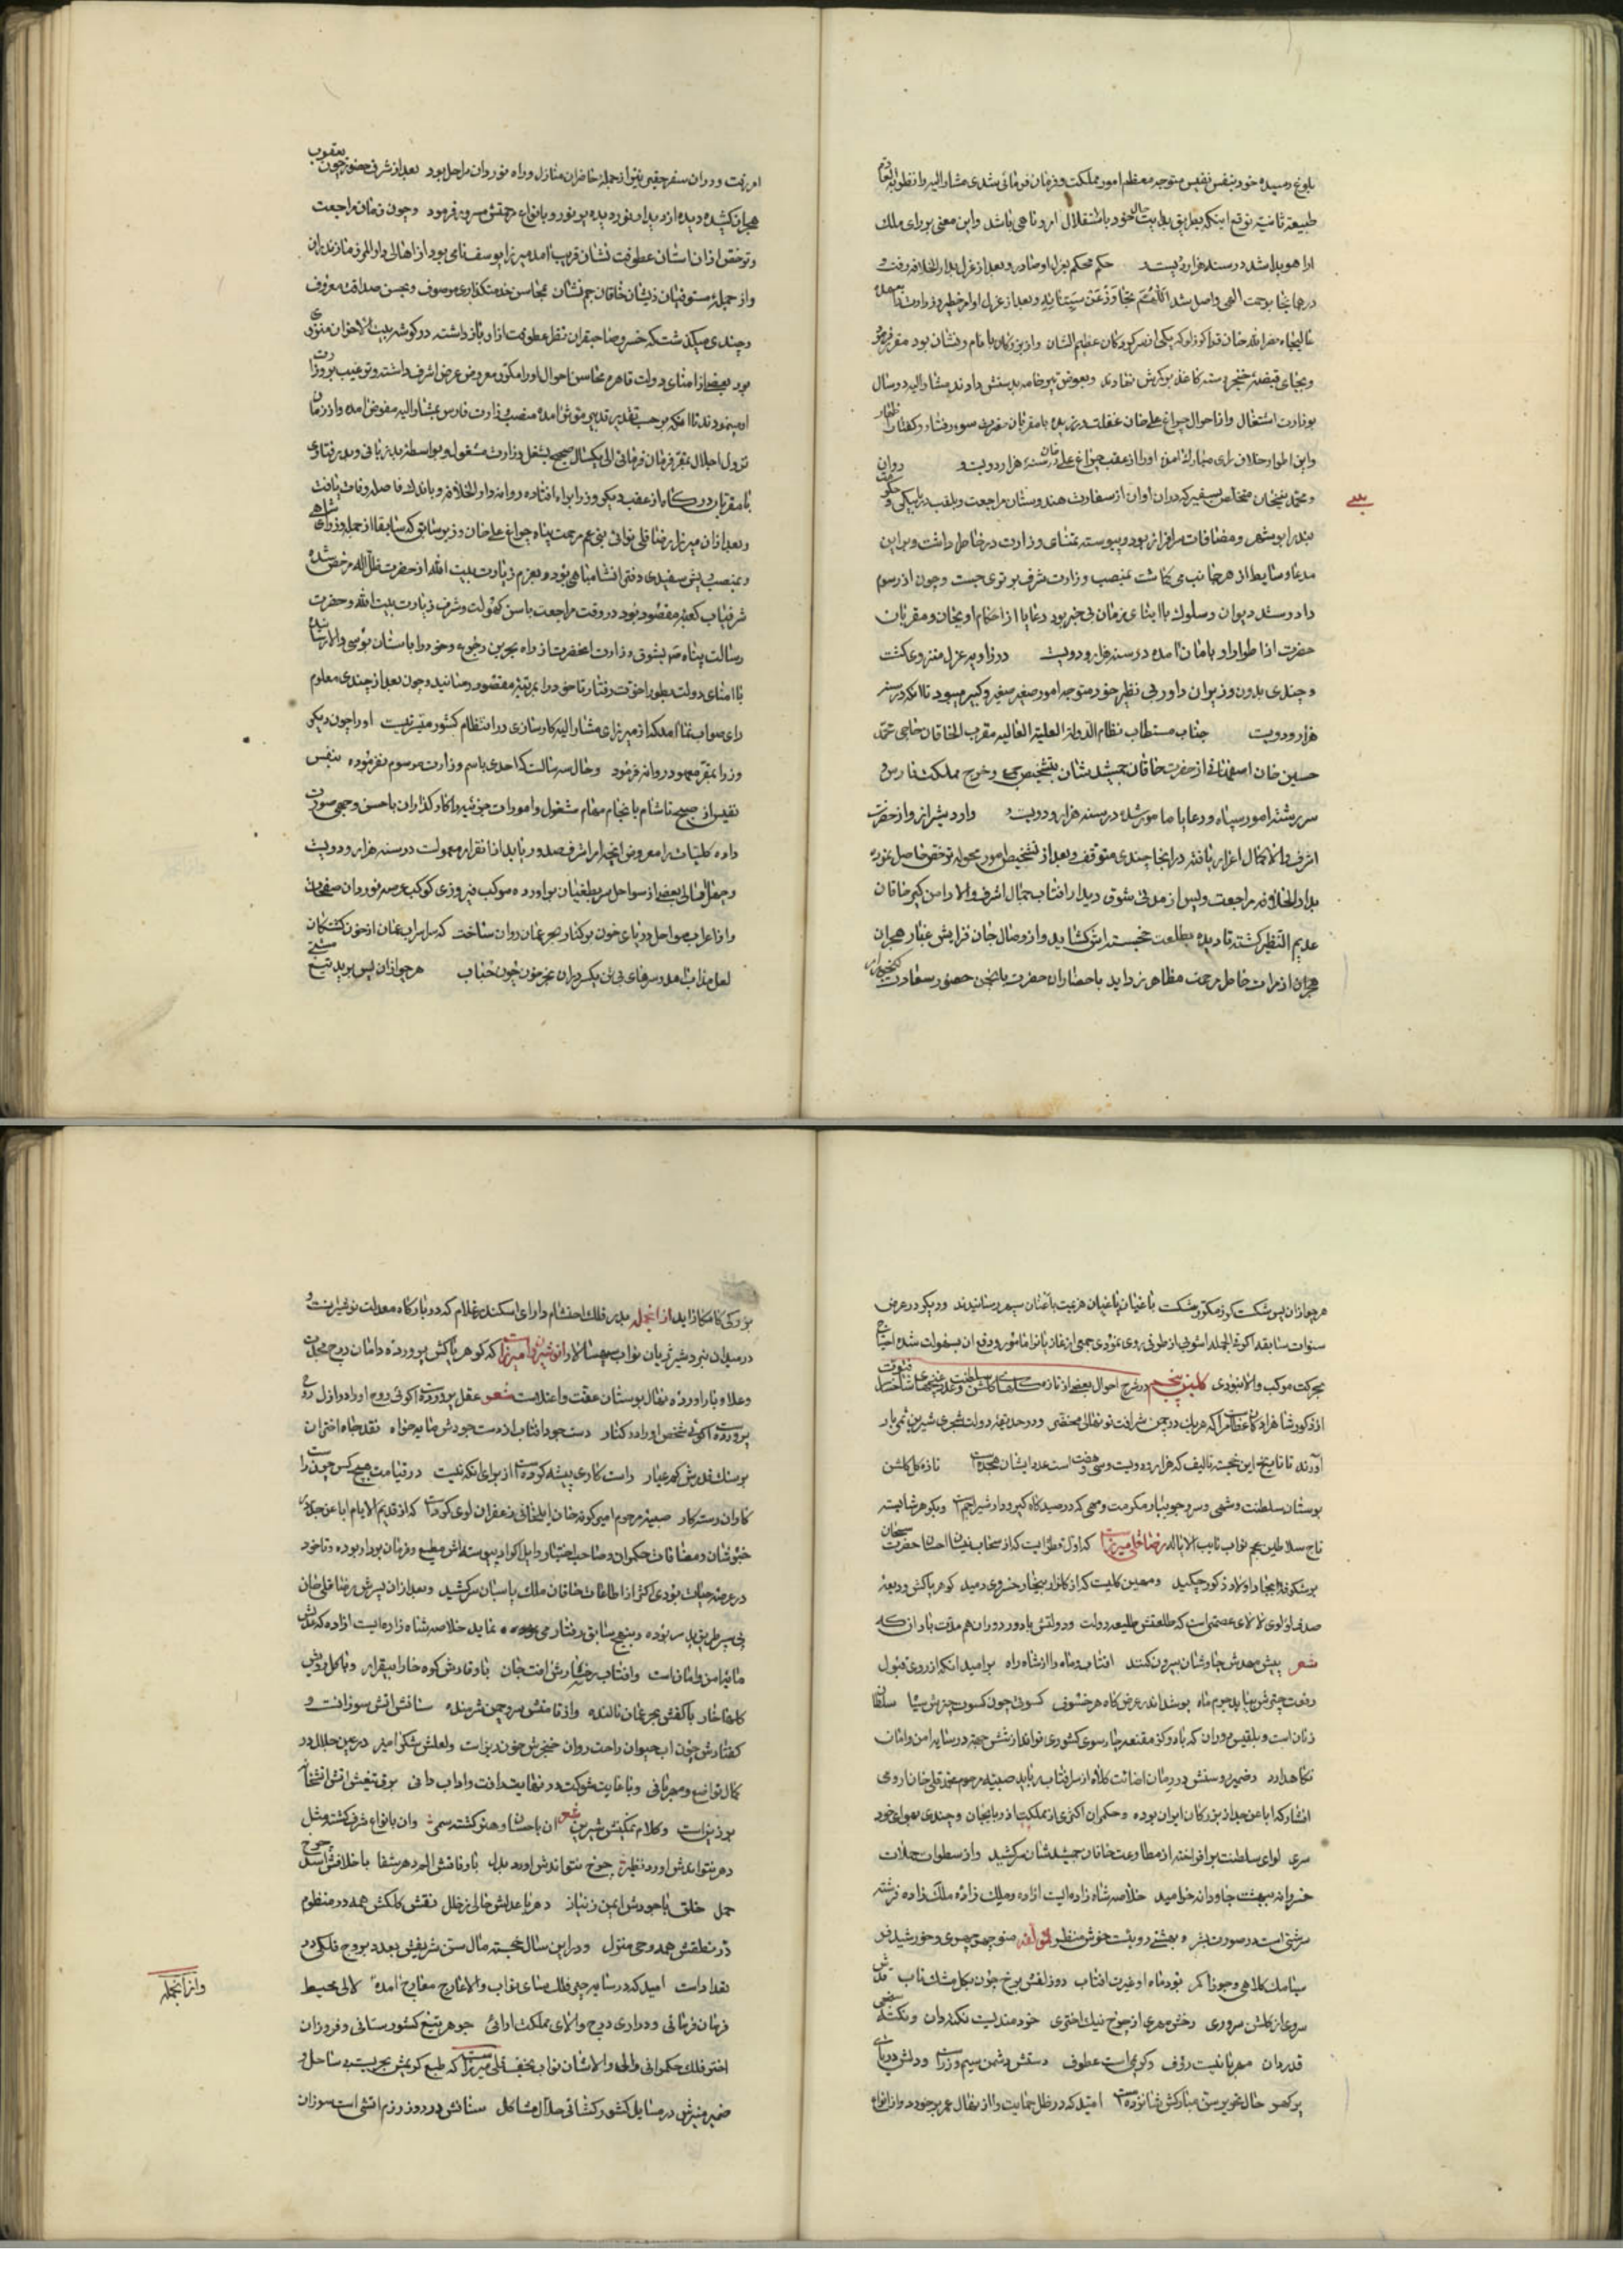 بلوغ رسیده خود بنفس نفیس متوجه معظم امور مملکت و فرمان فرمائی شدی مشار الیه را
طبیعة ثانیه توقع اینکه بطریق بدایت حال خود باستقلال امر و ناهی باشد و این معنی بر رای ملک
ارا هویدا شد در سنه هزار و دویست حکم محکم بعزل او صادر و بعد از عزل بدار الخلافه رفت و
در همانجا برحمت الهی واصل شد و بعد از عزل او امر خطیر وزارت
عالیجاه نصرالله خان قراگوزلو که یکی از نوکران عظیم الشان و از بزرگان با نام و نشان بود مقرر فرمود
و بجای قبضه خنجر دسته کاغذ بر کمرش نهادند و بعوض تیر خامه بدستش دادند مشار الیه دو سال
بوزارت اشتغال و از احوال چراغ علی خان غفلت ورزیده با مقربان حضرت سوء رفتار و گفتار
و این اطوار خلاف رای مبارک آمده او را از عقب چراغ علی خان در سنه هزار و دویست و روان
و محمد نبیخان متخلص بسفیر که در آن اوان از سفارت هندوستان مراجعت و بلقب دریابیگی و
بندر ابو شهر و مضافات سرافراز بود و پیوسته تمنای وزارت در خاطر داشت و بر این
مدعا وسایط از هر جانب می گماشت بمنصب وزارت شرف برتری جست و چون از رسوم
داد و ستد دیوان و سلوک با ابنای زمان بی خبر بود رعایا از احکام او بجان و مقربان
حضرت از اطوار او بامان آمده در سنه هزار و دویست در زاویه عزل منزوی گشت
و چندی بدون وزیر آن داور بی نظیر خود متوجه امور صغیر و کبیر میبود تا آنکه در سنه
هزار و دویست جناب مستطاب نظام الدوله العلیة العالیه مقرب الخاقان حاجی محمد
حسین خان اصفهانی از حضرت خاقان جمشید نشان بتشخیص جمع و خرج مملکت فارس و
سررشته امور سپاه و رعایا مامور شده در سنه هزار و دویست و وارد شیراز و از حضرت
اشرف والا کمال اعزاز یافته در انجا چندی متوقف و بعد از تشخیص امور محوله ترخص حاصل نموده
بدار الخلافه مراجعت و پس از مدتی شوق دیدار آفتاب جمال اشرف والا دامن گیر خاقان
عدیم النظیر گشته تا دیده بطلعت خجسته اش گشاید و از وصال جان فزایش غبار هجران
از مرات خاطر مرحمت مظاهر زداید باحضار آن حضرت حضور سعادت
امر رفت و در آن سفر حقیر نیز از جمله حاضران منازل و راه نوردان مراحل بود بعد از شرف حضور چون یعقوب
هجران کشیده دیده از دیدار نور دیده پر نور و بانواع مرحمتش مسرور فرمود و چون زمان مراجعت
و ترخص از آن استان عطوفت نشان قریب آمد میرزا یوسف نامی بود از اهالی دار المرز مازندران
و از جمله مستوفیان ذیشان خاقان جم نشان بمحاسن خدمتگذاری موصوف و بحسن صداقت معروف
و چندی میگذشت که خسرو صاحبقران نظر عطوفت از او باز داشته در گوشه بیت الاحزان منزوی
بود بعضی از امنای دولت قاهره محاسن احوال او را مکرر معروض عرض اشرف داشته و ترغیب بوزارت
او مینمودند تا آنکه بر حسب تقدیر تدبیر موثر آمده منصب وزارت فارس بمشار الیه مفوض آمد و از زمان
نزول اجلال بمقر فرمان فرمائی الی یکسال صحیح بشغل وزارت مشغول و بواسطه بد زبانی و بد رفتاری
با مقربان درگاه از عقب دیگر وزرا براه افتاده روانه دار الخلافه و باندک فاصله وفات یافت
و بعد از آن میرزا رضا قلی نوائی بنی عم مرحمت پناه چراغ علی خان وزیر سابق که سابقا از جمله وزرای شاهی
و بمنصب پیش سفیدی دفتر انشا مباهی بود و بعزم زیارت بیت الله از حضرت ظل الله مرخص شده
شرفیاب کعبه مقصود بود در وقت مراجعت با سن کهولت و شرف زیارت بیت الله و حضرت
رسالت پناه بشوق وزارت آنحضرت از راه بحرین رجوع و خود را باستان بوسی والا رسانیده
با امنای دولت بطور اخوت رفتار تا خود را بمرتبه مقصود رسانید و چون بعد از چندی معلوم
رای صواب نما آمد که از میرزای مشار الیه کارسازی در انتظام کشور میسر نیست او را چون دیگر
وزرا بمقر معهود روانه فرمود و حال سه سالست که احدی باسم وزارت مرسوم نفرموده بنفس
نفیس از صبح تا شام بانجام مهام مشغول و امورات جزئیه را کارگذاران باحسن وجهی صورت
داده کلیات را معروض آنچه امر اشرف صدور یابد از آنقرار معمول است در سنه هزار و دویست
و چهل اهالی بعضی از سواحل سر بطغیان بر اورده موکب فیروزی کوکب عرصه نوردان صفحات
و از اعراب سواحل دریای خون بر کنار بحر عمان روان ساخت که سراب عمان از خون کشتگان
لعل مذاب آمد و سرهای بی تن پیکر در آن بحر موج خون حباب هر چو از آن پس برید تیغ
هر چو از آن پس شکست گرز مگو بر شکست باغیان یاغیان هزیمت باعنان سپهر رسانیدند و دیگر در عرض
سنوات سابقه اگر فی الجمله اشوبی از طرفی روی نمودی جمعی از غازیان را مامور و دفع آن بسهولت شده احتیاج
بحرکت موکب والا نبودی گلبن پنجم در شرح احوال بعضی از تازه گلهای گلشن سلطنت و غنچهای شاخسار
از ذکور شاهزادگان عظام است که هر یک در چمن شرافت نونهالی محققی و در حدیقه دولت شجری شیرین ثمری بار
آورند تا تاریخ این خجسته تالیف که هزار و دویست و سی و هفت است عدد ایشان هجده است تازه گل گلشن
بوستان سلطنت و شمعی و سرو جویبار مکرمت و مهی که در صیدگاه گیر و دار شیر اجم است و گوهر شایسته
تاج سلاطین عجم نواب نایب الایاله رضا قلی میرزا است که اول قطره ایست که از سحاب نیسان احسان حضرت سبحان
برشکوفه ایجاد اولاد ذکور چکید و مهین گلیست که از گلزار بیخار خسروی دمید گوهر پاکش ودیعه
صدف لولوی لالای عصمتی است که طلعتش طلیعه دولت و دولتش با دور دوران هم مدت باد
شعر پیش مهدش چاوشان بیرون کنند افتاب و ماه را از شاهراه بر امید آنکه از روی قبول
رفعت چترش بیابد جرم ماه پوشد اندر عرض گاه هر خسوف کسوتی چون کسوت چترش سیاه
زنان است و بلقیس دوران که
نگاه دارد و ضمیر روشنش در زمان اضائت کلاه از سر آفتاب رباید صبیه مرحوم محمد قلی خان ارومی
افشار که ابا عن جد از بزرگان ایران بوده و حکمران اکثری از مملکت اذربایجان و چندی بهوای خود
سری لوای سلطنت بر افراخته از مطاوعت خاقان جمشید شان سر کشید و از سطوات حملات
خسروانه ببهشت جاودانه خرامید خلاصه شاه زاده ایست ازاده و ملک زاده ملک زاده فرشته
سرشتی است در صورت بشر و بهشتی رویست خوش منظر لمؤلفه منوچهر چهری و خورشید فر
سیامک کلاهی و جوزا کمر بود ماه او غیرت افتاب دو زلفش برخ چون بگل مشک ناب قدش
سروی از گلشن سروری رخش مهری از چرخ نیک اختری خردمندیست نکته دان و نکته سنجی
قدردان مهربانیست رؤف و کریمی است عطوف دستش دشمن سیم و زر است و دلش دریای
پر گهر حال تحریر سن مبارکش شانزده است امید که در ظل حمایت والا از نهال عمر برخوردار و از انواع
بزرگی کامکار اید از انجمله بدر فلک احتشام و دارای اسکندر غلام که در بارگاه معدلت نوشیروانست و
در میدان نبرد شیر ژیان نواب سپهسالار انوشیروان میرزا است که گوهر پاکش پرورده دامان دوحه مجد
و علا و بار اورده نهال بوستان عفت و اعتلاست شعر عقل پرورده است گوئی روح او را در ازل روح
پرورده است گوئی شخص او را در کنار دست جود آفتاب از دست جودش مایه خواه نقد جاه اختران
بر سنگ قدرش کم عیار راست کاری پیشه کرده است از برای انکه نیست در قیامت هیچ کس جز راست
کاران رسته کار صبیه مرحوم امیر گونه خان ایلخانی زعفرانلوی کرد است که از قدیم الایام ابا عن جد در
خبوشان و مضافات حکمران و صاحب اختیار و ایل اکراد پیوسته اش مطیع و فرمان بردار بوده و تا خود
در عرصه حیات بودی اکثر از اطاعت خاقان ملک پاسبان سر کشید و بعد از آن پسرش رضا قلی خان
پی سپر طریق پدر بوده و بنهج سابق رفتار می نماید خلاصه شاه زاده ایست ازاده که عدلش
مایه امن و امان است و آفتاب رخسارش آفت جان با وقارش کوه خارا بیقرار و با گل رویش
گلها خار با کفش بحر عمان نالنده و از قامتش سرو چمن شرمنده سنانش اتش سوزانست و
گفتارش چون اب حیوان راحت روان خنجرش خون ریز است و لعلش شکر آمیز در عین جلال در
کمال تواضع و مهربانی و با غایت شوکت در نهایت رافت و اداب دانی برق تیغش اتش
است و کلام نمکینش شیرین شعر آن باحسان و هنر گشته سمر وان بانواع شرف گشته مثل
دهر نتواندش اورد نظیر چرخ نتواندش اورد بدل با وفاقش الم دهر شفا با خلافش اسد چرخ
حمل خلق با جودش ایمن ز نیاز دهر با عدلش خالی ز خلل نقش کلکش همه در منظوم
در نطقش همه وحی منزل و در این سال خجسته مال سن شریفش بعدد بروج فلکی در
تعداد است امید که در سایه چتر فلک سای نواب والا عارج معارج امده لالی محیط
فرمان فرمائی و دراری درج والای مملکت ارائی جوهر تیغ کشور ستانی و فروزان
اختر فلک حکمرانی والی والا شان نواب نجف قلی میرزا است که طبع گوهریش بحریست بی ساحل و
ضمیر منیرش در مسایل کشور گشائی حلال مشاکل سنانش در روز رزم اتشی است سوزان
وازانجمله